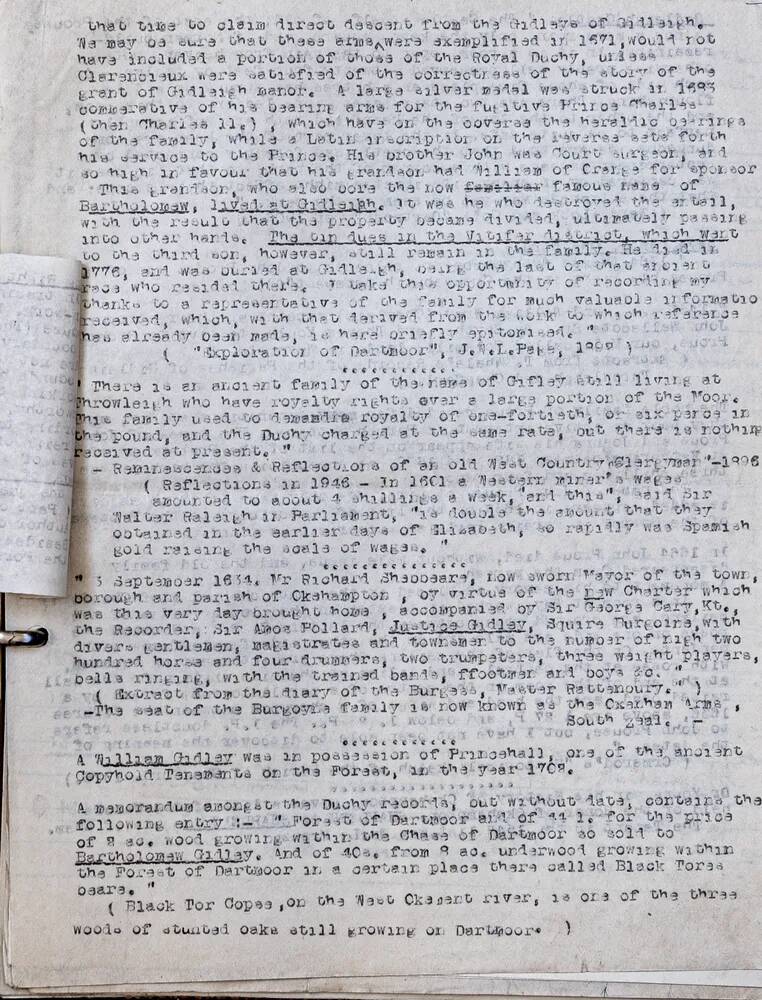 that time to claim direct descent from the Gidleys of Gidleigh.
We may be sure that these arms^were exemplified in 1671,would not
have included a portion of those of the Royal Duchy, unless
Clarencieux were satisfied of the correctness of the story of the
grant of Gidleigh manor. A large silver medal was struck in 1683
commerative of his bearing arms for the fugitive Prince Charles
(then Charles 11.) , which have on the obverse the heraldic bearings
of the family, while a Latin inscription on the reverse sets forth
his service to the Prince. His brother John was Court surgeon, and
so high in favour that his grandson had William of Orange for sponsor
This grandson, who also bore the now familiar famous name of
Bartholomew, lived at Gidleigh. It was he who destroyed the entail,
with the result that the property became divided, ultimately passing
into other hands. The tin dues in the Vitifer district, which went
to the third son, however, still remain in the family. He died in
1776, and was buried at Gidleigh, being the last of that ancient
race who resided there. I take this opportunity of recording my
thanks to a representative of the family for much valuable informatio
received, which, with that derived from the work to which reference
has already been made, is here briefly epitomised. "
( "Exploration of Dartmoor", J.W.L.Page, 1889 )
" There is an ancient family of the name of Gifley still living at
Throwleigh who have royalty rights over a large portion of the Moor.
This family used to demandxa royalty of one-fortieth, or six pence in
the pound, and the Duchy charged at the same rate, but there is nothing
received at present. "
- Reminescences & Reflections of an old West Country Clergyman"-1896
( Reflections in 1946 - In 1601 a Western miner's wages
amounted to about 4 shillings a week,"and this", said Sir
Walter Raleigh in Parliament, "is double the amount that they
obtained in the earlier days of Elizabeth, so rapidly was Spanish
gold raising the scale of wages. "
" 3 September 1634. Mr Richard Shebbeare, now sworn Mayor of the town,
borough and parish of Okehampton , by virtue of the new Charter which
was this very day brought home , accompanied by Sir George Cary,Kt.,
the Recorder, Sir Amos Pollard, Justice Gidley, Squire Burgoine,with
divers gentlemen, magistrates and townsmen to the number of nigh two
hundred horse and four drummers, two trumpeters, three weight players,
bells ringing, with the trained bands, ffootmen and boys &c. "
( Extract from the diary of the Burgess, Master Rattenbury." )
-The seat of the Burgoyne family is now known as the Oxenham Arms ,
South Zeal. -
A William Gidley was in possession of Princehall, one of the ancient
Copyhold Tenements on the Forest, in the year 1702.
A memorandum amongst the Duchy records, but without date, contains the
following entry :- " Forest of Dartmoor and of 44 l. for the price
of 8 ac. wood growing within the Chase of Dartmoor so sold to
Bartholomew Gidley. And of 40s. from 8 ac. underwood growing within
the Forest of Dartmoor in a certain place there called Black Tores
beare. "
( Black Tor Copse ,on the West Okement river, is one of the three
woods of stunted oaks still growing on Dartmoor. )